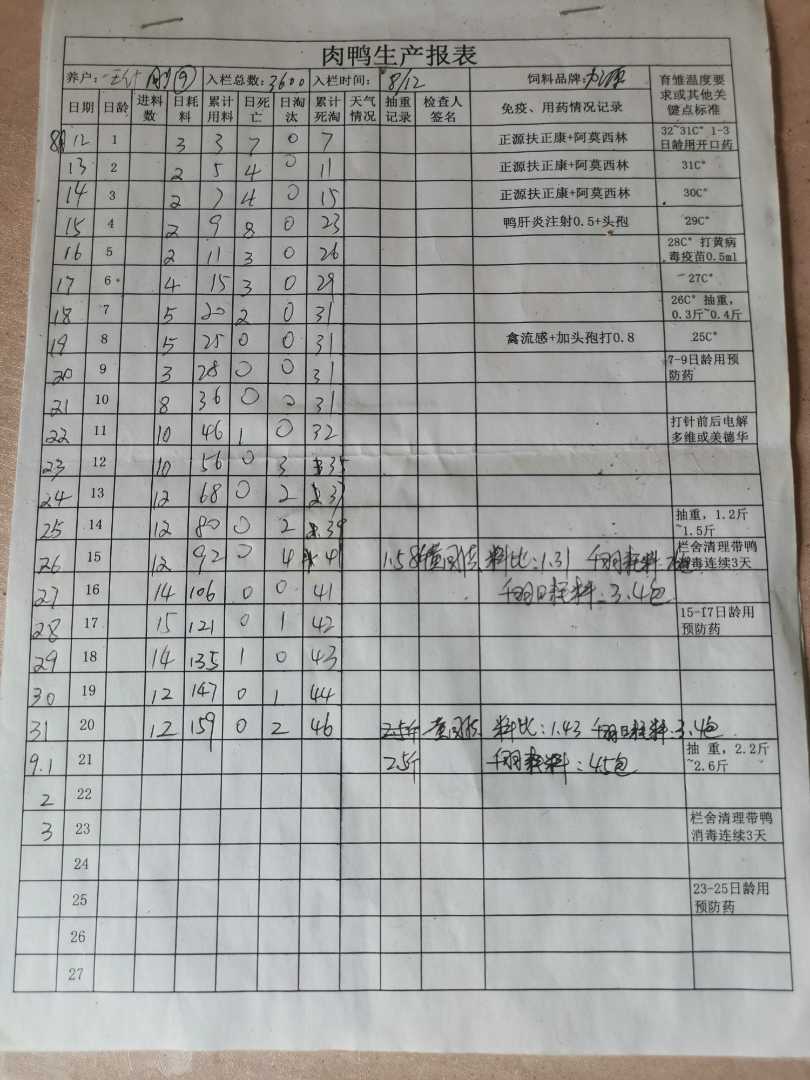 肉鸭生产报表
养户: 入栏总数:3600 入栏时间: 8/12 饲料品牌: 育雏温度要求或其他关键点标准
日期 日龄 进料数 日耗料 累计用料 日死亡 日淘汰 累计死淘 天气情况 抽重记录 检查人签名 免疫、用药情况记录
8/12 1 3 3 7 0 7 正源扶正康+阿莫西林 32~31C° 1-3日龄用开口药
13 2 2 5 4 0 11 正源扶正康+阿莫西林 31C°
14 3 2 7 4 0 15 正源扶正康+阿莫西林 30C°
15 4 2 9 8 0 23 鸭肝炎注射0.5+头孢 29C°
16 5 2 11 3 0 26 28C° 打黄病毒疫苗0.5ml
17 6 4 15 3 0 29 27C°
18 7 5 20 2 0 31 26C° 抽重，0.3斤~0.4斤
19 8 5 25 0 0 31 禽流感+加头孢打0.8 25C°
20 9 3 28 0 0 31 7-9日龄用预防药
21 10 8 36 0 0 31
22 11 10 46 1 0 32 打针前后电解多维或美德华
23 12 10 56 0 3 35
24 13 12 68 0 2 37
25 14 12 80 0 2 39 抽重，1.2斤~1.5斤
26 15 12 92 0 4 41 1.58斤 料比:1.31 千羽耗料 栏舍清理带鸭消毒连续3天
27 16 14 106 0 0 41 千羽日耗料:3.4包
28 17 15 121 0 1 42 15-17日龄用预防药
29 18 14 135 1 0 43
30 19 12 147 0 1 44
31 20 12 159 0 2 46 2.5斤 料比:1.43 千羽日耗料:3.4包
9.1 21 2.5斤 千羽耗料:45包 抽 重，2.2斤~2.6斤
2 22
3 23 栏舍清理带鸭消毒连续3天
24
25 23-25日龄用预防药
26
27